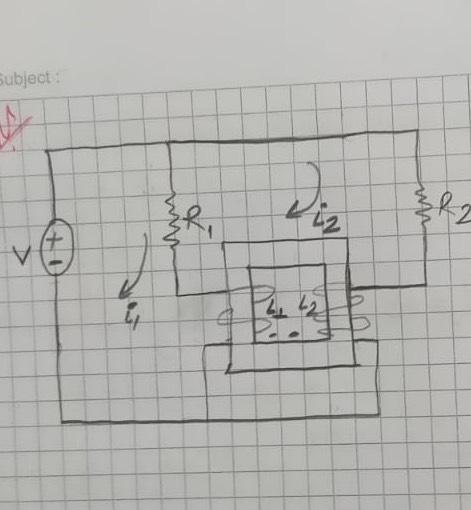 Subject :
R1
R2
i2
V
+
-
i1
L1 L2